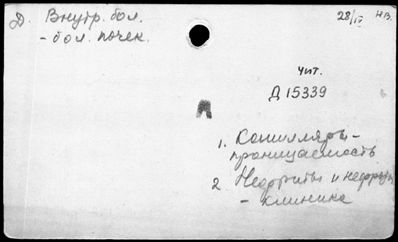 Д. Внутр. бол.
- бол. почек.
28/IV НВ.
Чит.
Д 15339
1. Капилляры -
проницаемость
2. Нефриты и нефрозы
- клиника